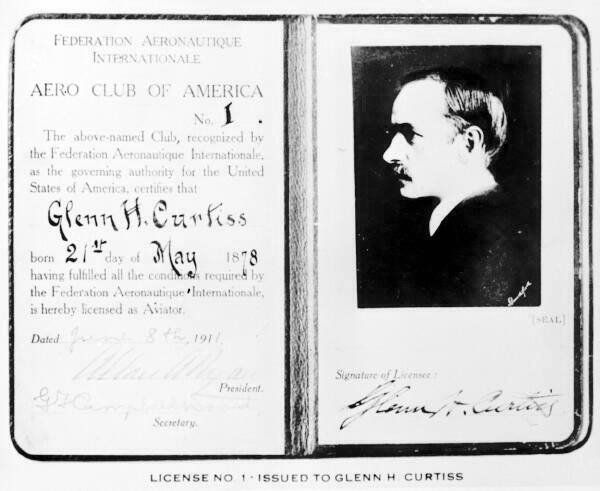 FEDERATION AERONAUTIQUE
INTERNATIONALE
AERO CLUB OF AMERICA
No. 1.
The above-named Club, recognized by
the Federation Aeronautique Internationale,
as the governing authority for the United
States of America, certifies that
Glenn H. Curtiss
born 21st day of May 1878
having fulfilled all the conditions required by
the Federation Aeronautique Internationale,
is hereby licensed as Aviator.
Dated June 8th, 1911
President.
Secretary.
[SEAL]
Signature of Licensee:
Glenn H. Curtiss
LICENSE NO. 1 · ISSUED TO GLENN H. CURTISS